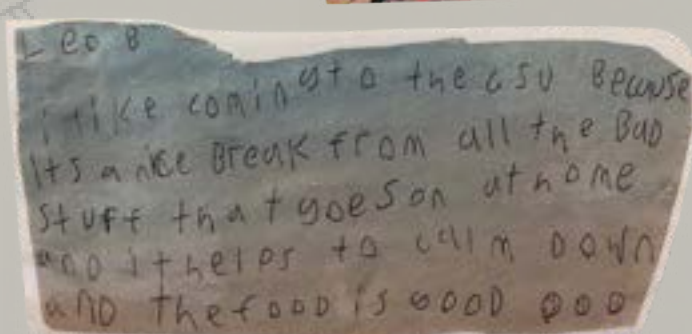 Leo B
i like coming to the CSU Because
Its a nice Break from all the BaD
Stuff that goes on at home
anD it helps to calm DowN
anD the fooD is gooD